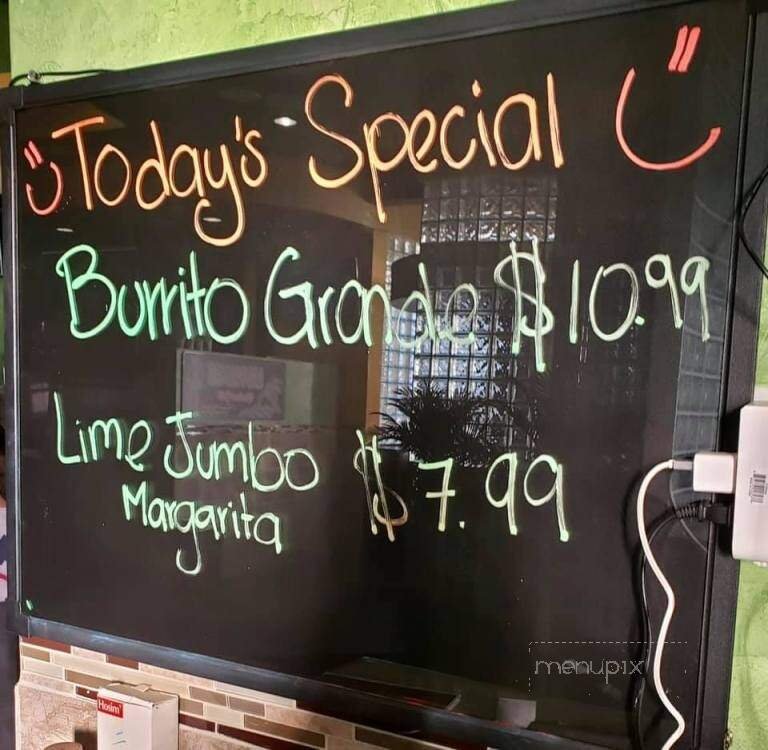 Today's Special
Burrito Grande $10.99
Lime Jumbo $7.99
Margarita
menupix
Hosim